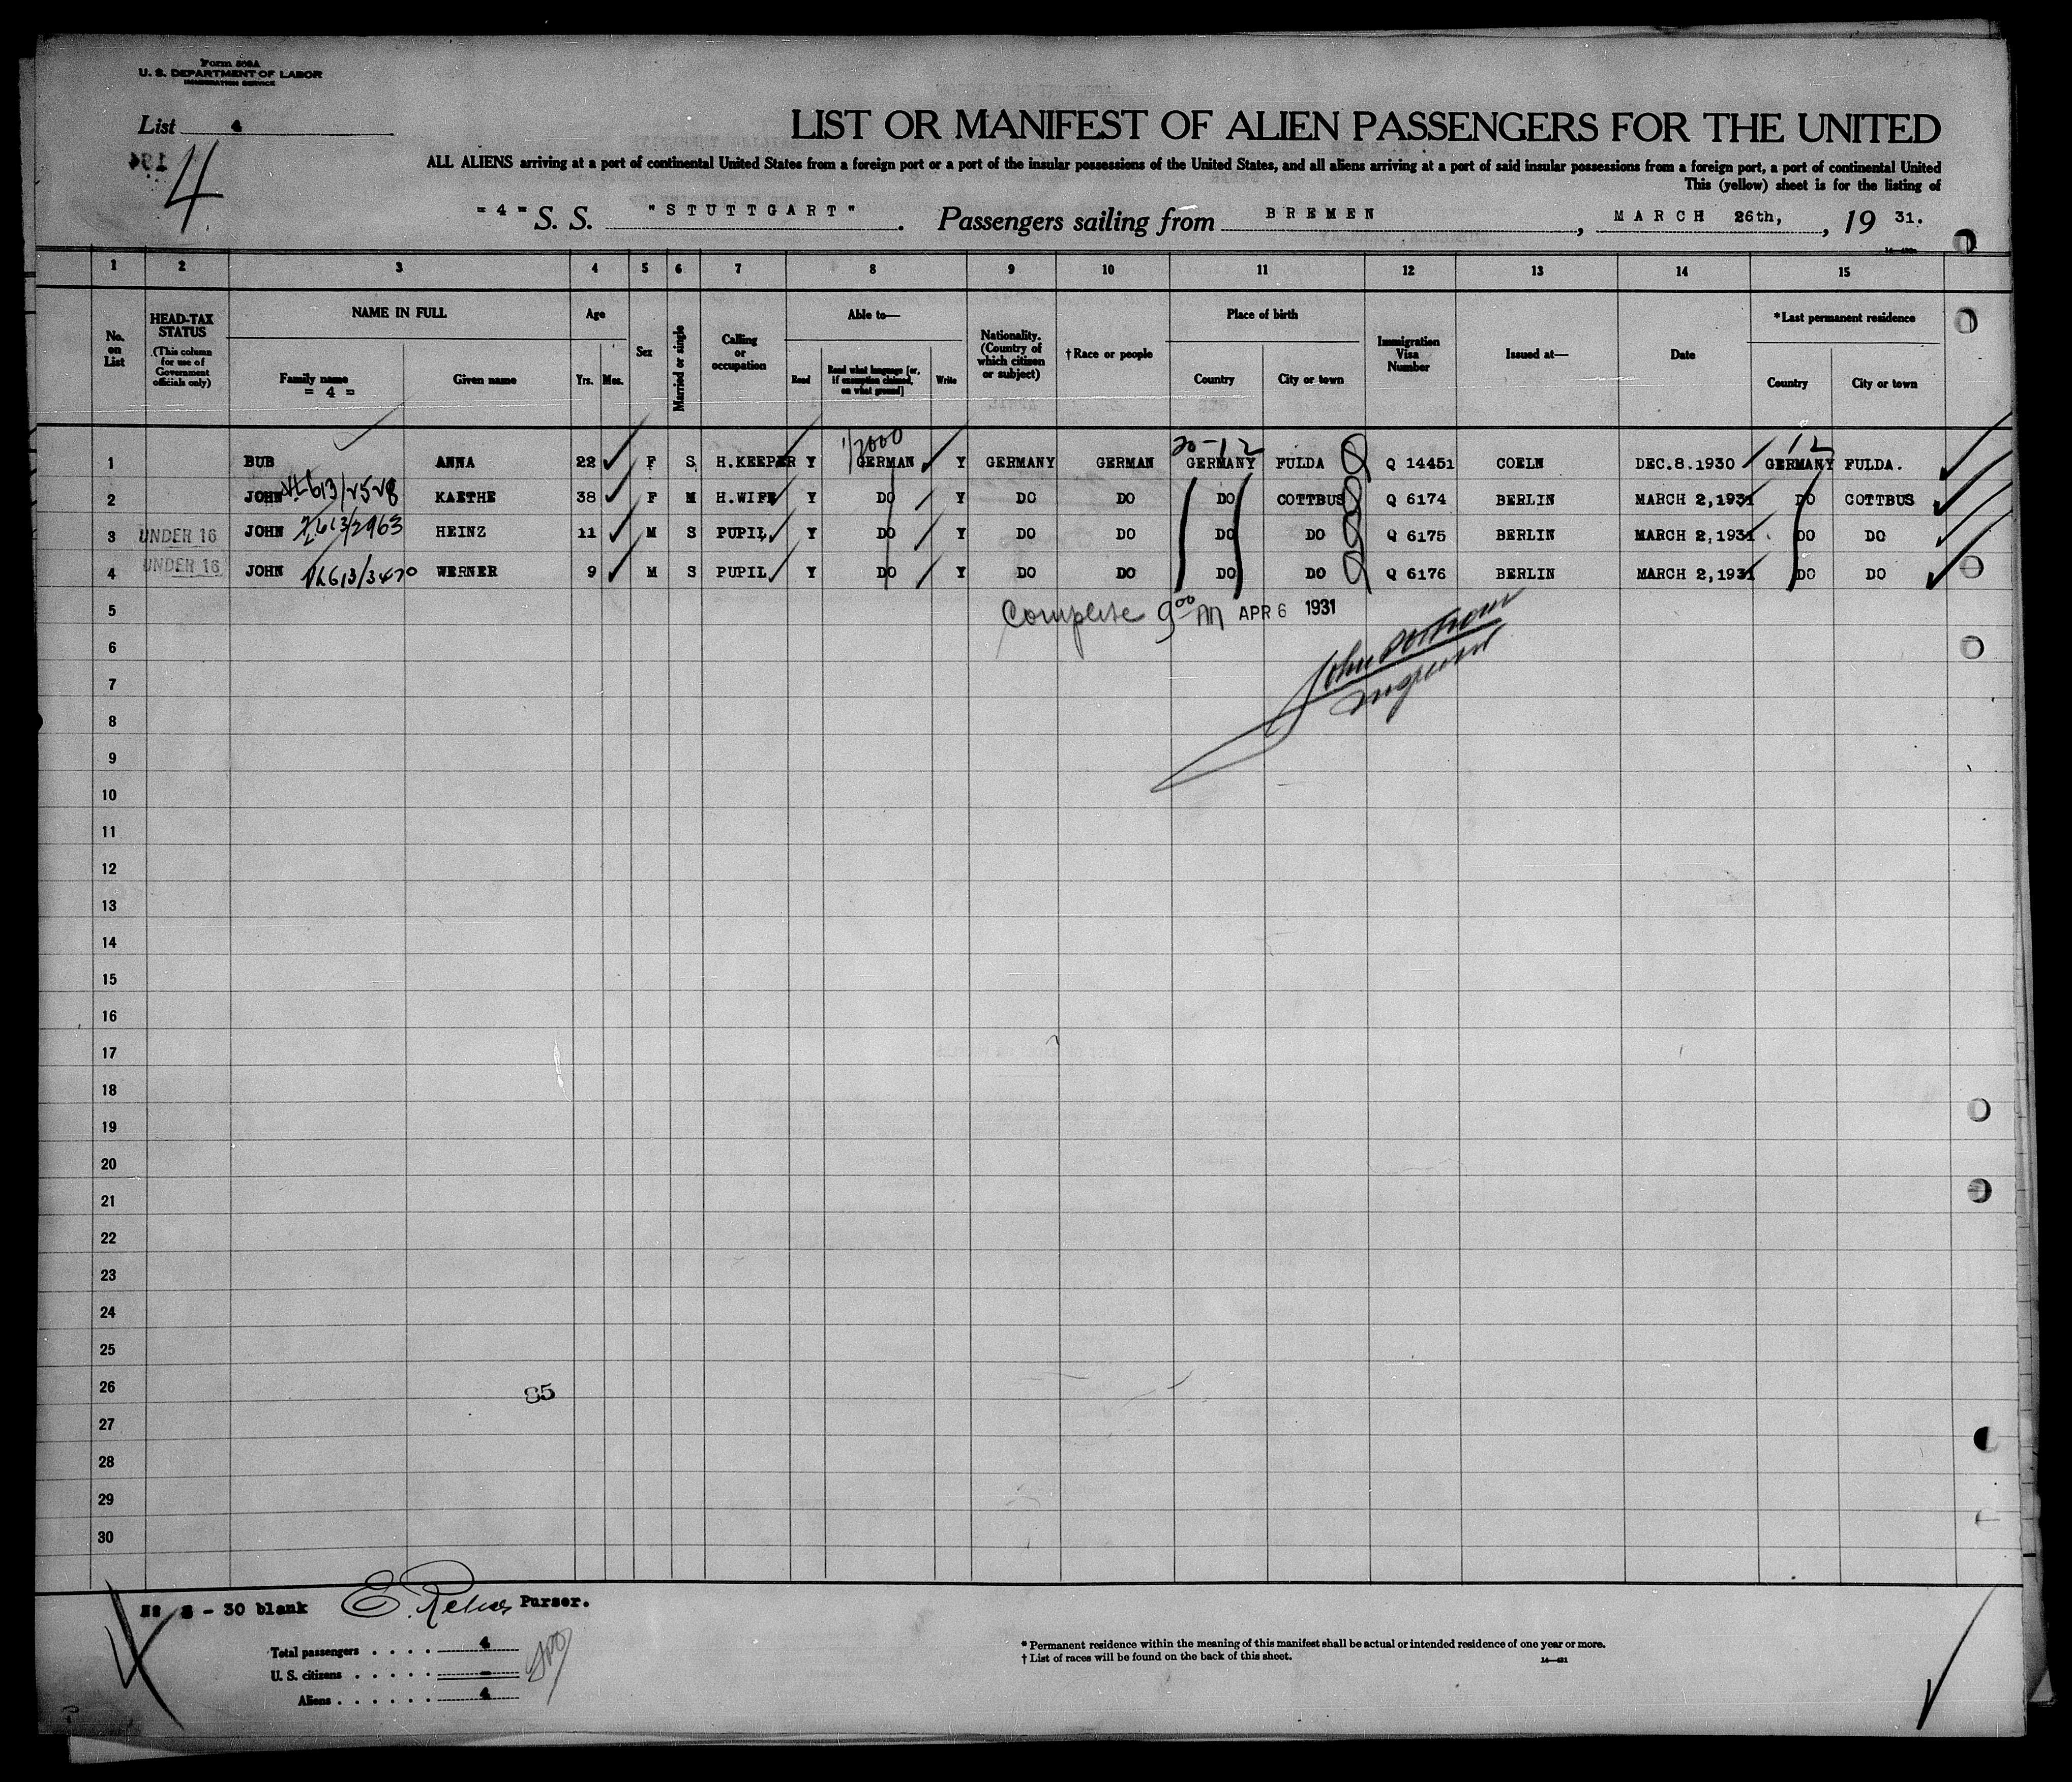 Form 500A
U. S. DEPARTMENT OF LABOR
IMMIGRATION SERVICE
List 4
4
LIST OR MANIFEST OF ALIEN PASSENGERS FOR THE UNITED
ALL ALIENS arriving at a port of continental United States from a foreign port or a port of the insular possessions of the United States, and all aliens arriving at a port of said insular possessions from a foreign port, a port of continental United
This (yellow) sheet is for the listing of
= 4 = S. S. "STUTTGART". Passengers sailing from BREMEN, MARCH 26th, , 19 31.
1 2 3 4 5 6 7 8 9 10 11 12 13 14 15
No. on List
HEAD-TAX STATUS
(This column for use of Government officials only)
NAME IN FULL
Family name
= 4 =
Given name
Age
Yrs. Mos.
Sex
Married or single
Calling or occupation
Able to—
Read
Read what language [or, if exemption claimed, on what ground]
Write
Nationality. (Country of which citizen or subject)
†Race or people
Place of birth
Country
City or town
Immigration Visa Number
Issued at—
Date
*Last permanent residence
Country
City or town
20-12 12
1 BUB ANNA 22 F S H.KEEPER Y GERMAN Y GERMANY GERMAN GERMANY FULDA Q 14451 COELN DEC.8.1930 GERMANY FULDA.
2 JOHN 613/2528 KAETHE 38 F M H.WIFE Y DO Y DO DO DO COTTBUS Q 6174 BERLIN MARCH 2,1931 DO COTTBUS
3 UNDER 16 JOHN 613/2963 HEINZ 11 M S PUPIL Y DO Y DO DO DO DO Q 6175 BERLIN MARCH 2,1931 DO DO
4 UNDER 16 JOHN 613/3470 WERNER 9 M S PUPIL Y DO Y DO DO DO DO Q 6176 BERLIN MARCH 2,1931 DO DO
5 Complete 9 00 AM APR 6 1931
6
7
8
9
10
11
12
13
14
15
16
17
18
19
20
21
22
23
24
25
26
85
27
28
29
30
- 30 blank E. Purser.
Total passengers . . . . 4
U. S. citizens . . . . . -
Aliens . . . . . . 4
* Permanent residence within the meaning of this manifest shall be actual or intended residence of one year or more.
† List of races will be found on the back of this sheet.